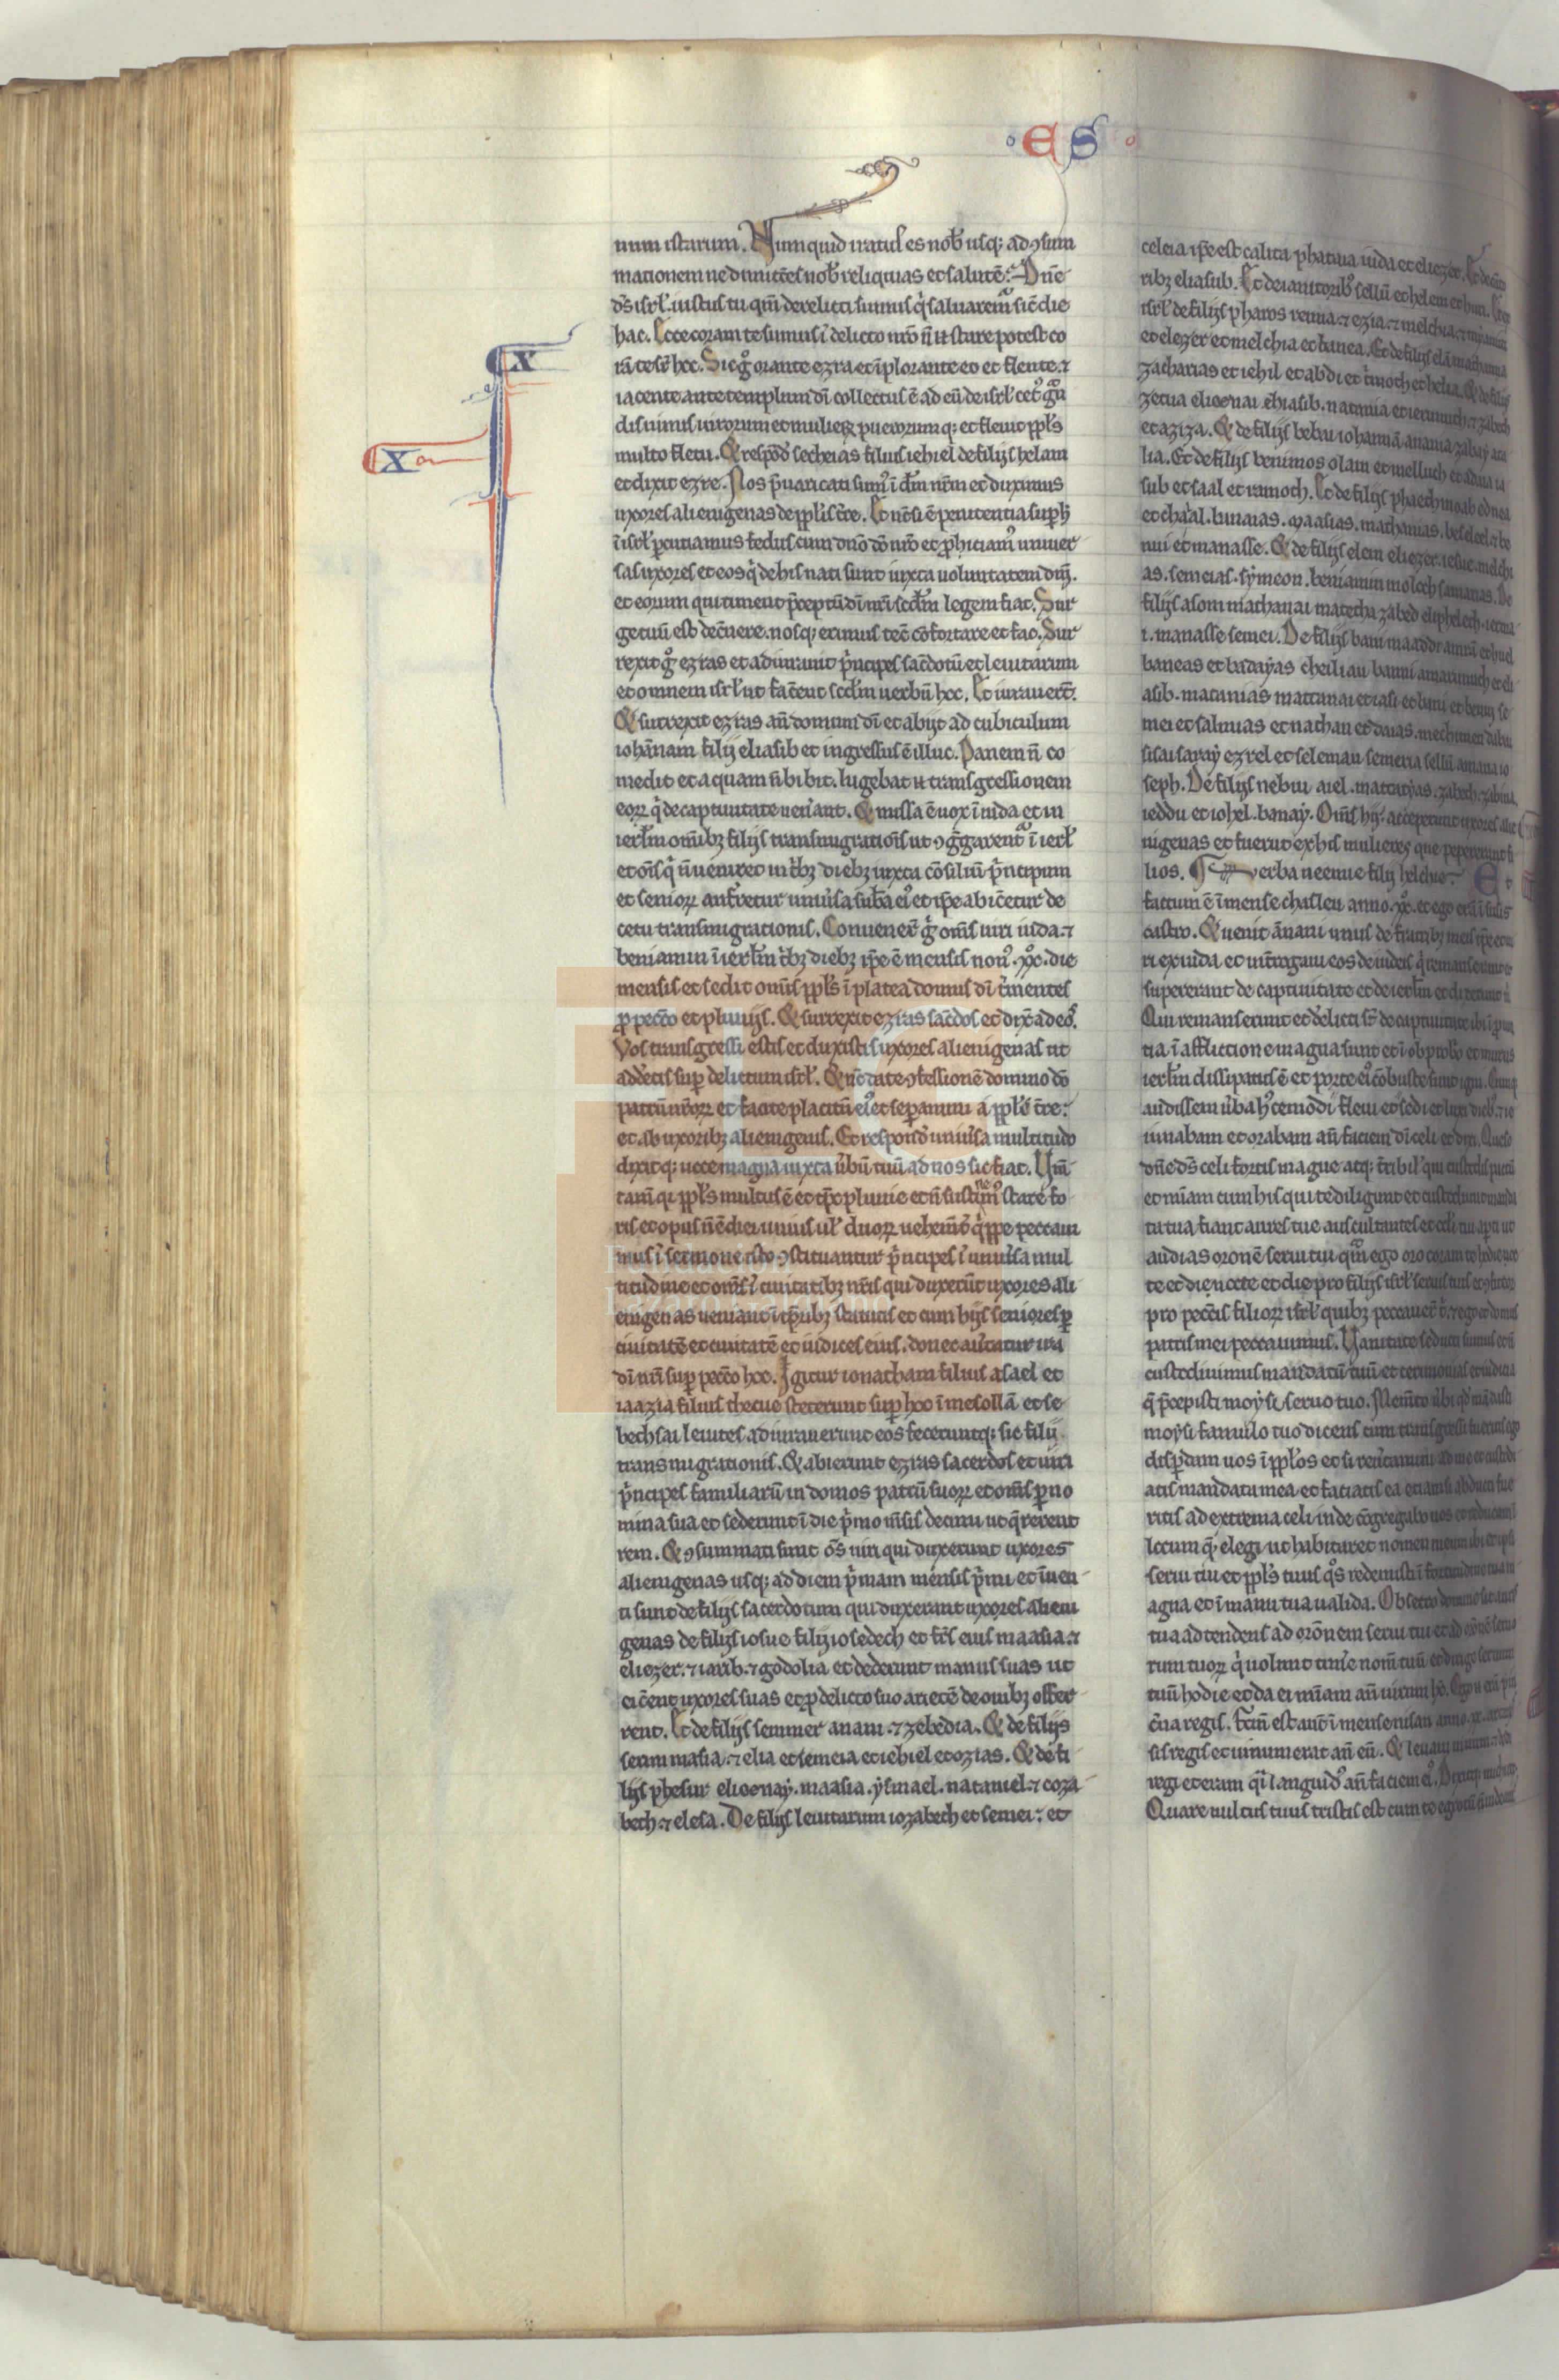 ES
num istarum. Numquid iratus es nob̅ usq; ad ꝯsum
mationem ne dimitt̅es nob̅ reliquias et salute̅? Dn̅e
ds̅ isrl̅. iustus tu qm̅ derelicti sumus qͥ saluaremͬ sic̅ die
hac. Ecce coram te sumus i̅ delicto nr̅o n̅ .n. stare potest co
ra̅ te sr̅ hoc. Sic gͦ orante ezra et i̅plorante eo et flente. ⁊
iacente ante templum di̅ collectus e̅ ad eu̅ de isrl̅ cet᷒ gͣn
dis nimis uirorum et mulieꝝ puerorumq; et fleuit ppl̅s
multo fletu. Et respo̅d̅ secheias filius iehiel de filijs helam
et dixit ezre. Nos p̅uaricati sum᷒ i̅ dm̅ nr̅m et duximus
uxores alienigenas de ppl̅is t̅re. Et nc̅ si e̅ penitentia sup̱ hͦ
i̅ isrl̅ p̱cutiamus fedus cum dn̅o do̅ nr̅o et ꝓhiciam᷒ uniuer
sas uxores et eos qͥ de his nati sunt iuxta uoluntatem dn̅i.
et eorum qui timent p̅ceptu̅ di̅ nr̅i scd̅m legem fiat. Sur
ge tuu̅ est dec̅nere. nosq; erimus tec̅ co̅fortare et fac. Sur
rexit gͦ ezras et adiurauit pͥncipes sac̅dotu̅ et leuitarum
et omnem isrl̅ ut fac̅ent scd̅m uerbu̅ hoc. Et iurauer̅t.
Et surrexit ezras an̅ domum di̅ et abijt ad cubiculum
ioha̅nam filij eliasib et ingressus e̅ illuc. Panem n̅ co
medit et aquam n̅ bibit. lugebat .n. transgressionem
eoꝝ qͥ de captiuitate uen̅ant. Et missa e̅ uox i̅ iuda et in
ierl̅m omͥbꝫ filijs transmigratio̅is ut ꝯg̅garentͬ i̅ ierl̅
et oi̅s qͥ n̅ uenir̅et in tͥbꝫ diebꝫ iuxta co̅siliu̅ pͥncipum
et senioꝝ auf̅retur uniu̅sa sub̅a ei᷒ et ip̅e abic̅etur de
cetu transmigrationis. Conuener̅ gͥ om̅s uiri iuda. ⁊
beniamin i̅ ierl̅m tͥbꝫ diebꝫ ip̅e e̅ mensis non᷒. xx. die
mensis et sedit omͥs ppl̅s i̅ platea domus di̅ tͥmentes
ꝓ pecc̅o et pluuijs. Et surrexit ezras sac̅dos et dix̅ ad eos.
Vos transgressi estis et duxistis uxores alienigenas ut
add̅etis sup̱ delictum isrl̅. Et nc̅ date ꝯfessione̅ domino do̅
patru̅ nr̅oꝝ et facite placitu̅ ei᷒ et sep̱amini a ppl̅is t̅re.
et ab uxoribꝫ alienigenis. Et respond̅ uniu̅sa multitudo
dixitq; uoce magna iuxta u̅bu̅ tuu̅ ad nos sic fiat. Um̅
tam̅ qi ppl̅s multus e̅ et tp̅s pluuie et n̅ sustinem᷒ stare fo
ris et opus n̅ e̅ diei unius ul̅ duoꝝ uehem̅t̅ qͥppe peccaui
mus i̅ sermone isto ꝯstituantur pͥncipes i̅ uniu̅sa mul
titudine et om̅s i̅ ciuitatibꝫ nr̅is qui duxeru̅t uxores ali
enigenas ueniant i̅ tp̅ribꝫ statutis et cum hijs seniores p̱
ciuitate̅ et ciuitate̅ et iudices eius. donec au̅tatur ira
di̅ nr̅i sup̱ pecc̅o hoc. Igitur ionatham filius asael et
iaazia filius thecue steterunt sup̱ hoc i̅ mesolla̅ et se
bechsai leuites adiuuerunt eos feceruntq; sic filij
transmigrationis. Et abierunt ezras sacerdos et uiri
pͥncipes familiaru̅ in domos patru̅ suoꝝ et om̅s p̱ no
mina sua et sederunt i̅ die pͥmo m̅sis decimi ut q̅rerent
rem. Et ꝯsummati sunt o̅s uiri qui duxerunt uxores
alienigenas usq; ad diem pͥmam mensis pͥmi et i̅uen
ti sunt de filijs sacerdotum qui duxerant uxores alieni
genas de filijs iosue filij iosedech et fr̅s eius maasia. ⁊
eliezer. ⁊ iarib. ⁊ godolia et dederunt manus suas ut
eic̅ent uxores suas et ꝓ delicto suo ariete̅ de ouibꝫ offer
rent. Et de filijs semmer anani. ⁊ zebedia. Et de filijs
serim masia. ⁊ elia et semeia et iehiel et ozias. Et de fi
lijs phesur elioenaẏ. maasia. ẏsmael. nataniel. ⁊ ioza
bech. ⁊ elesa. De filijs leuitarum iozabech et semei. et
X
X
celeia ip̅e est calita phataia iuda et eliezer. Et de
ribꝫ eliasub. Et de ianitoribꝫ sellu̅ et helem et huri. Et ex
isrl̅ de filijs pharos remia. ⁊ ezia. ⁊ melchia. ⁊
et elezer et melchia et banea. Et de filijs ela̅ mathania
zacharias et iehil et abdi et iͥmoth et helia. Et de filijs
zetua elioenai. eliasib. natania et ierimuth. ⁊ zabech
et aziza. Et de filijs bebai iohanna̅ anania zabaẏ ata
lia. Et de filijs benimos olam et melluch et adaia ia
sub et saal et ramoth. Et de filijs phaethmoab edna
et chaal. banaias. maasias. mathanias. beseleel. ⁊ bo
nui et manasse. Et de filijs elem eliezer. iesue. melchi
as. semeias. sẏmeon. beniamin moloch samarias. De
filijs asom mathanai matetha zabed eliphelech. ierma
i. manasse semei. De filijs bani maaddi amra̅ et huel
baneas et badaẏas cheiliau banni amarimuth et eli
asib. matanias mattanai et iasi et bani et bennij se
mei et salmias et nathan et daias. mechnedabai
sisai saraẏ ezrel et seleman semeria sellu̅ amaria io
seph. De filijs nebui aiel. mattatẏas. zabeth. zabina
ieddu et iohel. banaẏ. Om̅s hij acceperunt uxores alie
nigenas et fuerut ex his mulieres que pepererunt fi
lios. Verba neemie filij helchie. Et
factum e̅ i̅ mense chasleu anno. xx. et ego era̅ i̅ susis
castro. Et uenit a̅nani unus de fr̅ribꝫ meis ip̅e et ui
ri ex iuda et int̅rogaui eos de iudeis qͥ remanserant
supererant de captiuitate et de ierl̅m et dixerunt
Qui remanserunt et delicti st̅ de captiuitate ibi i̅
tia i̅ afflictione magna sunt et i̅ obprob̅o et murus
ierl̅m dissipatus e̅ et porte ei᷒ co̅buste sunt igni. Cumq
audissem u̅ba hꝰcemodi fleui et sedi et luxi dieb̅. ⁊ ie
iunabam et orabam an̅ faciem di̅ celi et dixi. Queso
dn̅e ds̅ celi fortis magne atq; t̅ribil᷒ qui custodis pactu̅
et mi̅am cum his qui te diligunt et custodiunt manda
ta tua fiant aures tue auscultantes et ocl̅i tui apti ut
audias oro̅nem serui tui qͣm ego oro coram te hodie noc
te et die nocte et die pro filijs isrl̅ seruis tuis et ꝯfiteor
pro pecc̅is filioꝝ isrl̅ quibꝫ peccauer̅ t̅. ⁊ ego et domus
patris mei peccauimus. Uanitate seducti sumus et n̅
custodiuimus mandatu̅ tuu̅ et cerimonias et iudicia
q̅ p̅cepisti moẏsi seruo tuo. Mem̅to u̅bi qd̅ ma̅dasti
moẏsi famulo tuo dicens cum transgressi fueritis ego
disp̱dam uos i̅ ppl̅os et si reu̅tamini ad me et custodi
atis mandata mea et faciatis ea etiamsi abducti fue
ritis ad extrema celi inde co̅gregabo uos et reducam i̅
locum que̅ elegi ut habitaret nomen meum ibi et ip̅i
serui tui et ppl̅s tuus qͦs redemisti i̅ fortitudine tua m
agna et i̅ manu tua ualida. Obsecro domine sit auris
tua adtendens ad oro̅nem serui tui et ad oro̅nem seruo
rum tuoꝝ qͥ uolunt tim̅e nom̅ tuu̅ et dirige seruum
tuu̅ hodie et da ei mi̅am an̅ uirum hc̅. Ego .n. era̅ pin
c̅na regis. Fc̅m̅ est aut̅ i̅ mense nisan anno. xx. artar
sis regis et uinum erat an̅ eu̅. Et leuaui uinum. ⁊ dedi
regi et eram qͣi languid᷒ an̅ faciem ei᷒. Dixitq; michi
Quare uultus tuus tristis est cum te egrotu̅